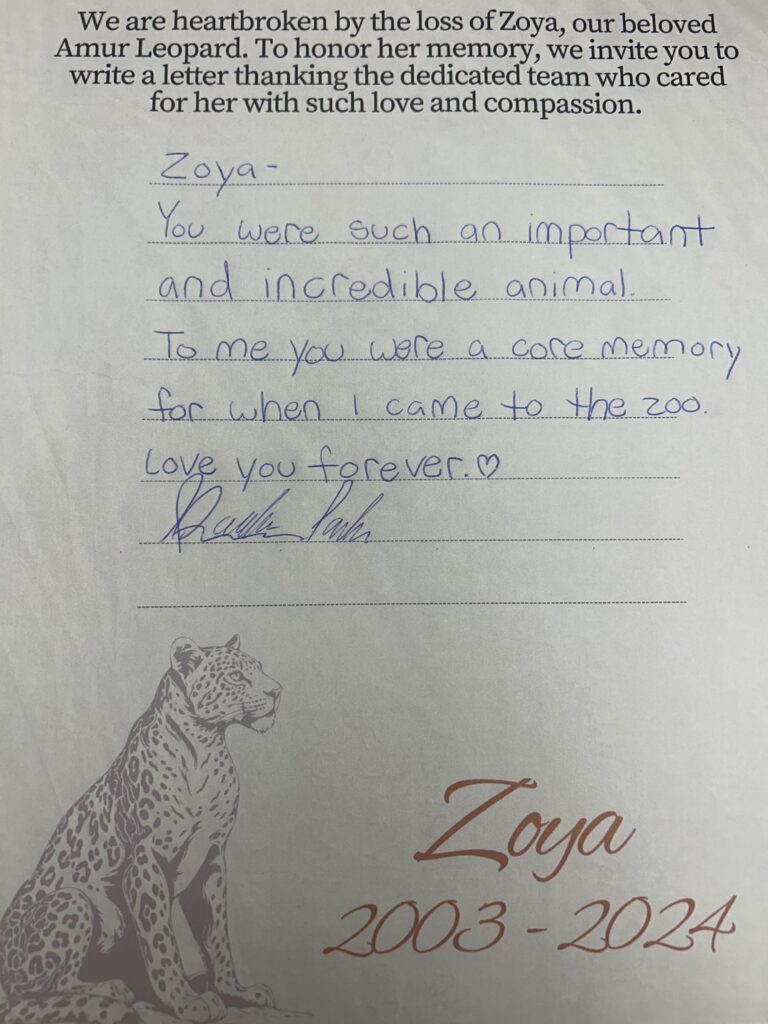 We are heartbroken by the loss of Zoya, our beloved
Amur Leopard. To honor her memory, we invite you to
write a letter thanking the dedicated team who cared
for her with such love and compassion.
Zoya-
You were such an important
and incredible animal.
To me you were a core memory
for when I came to the zoo.
Love you forever.♡
Zoya
2003 - 2024